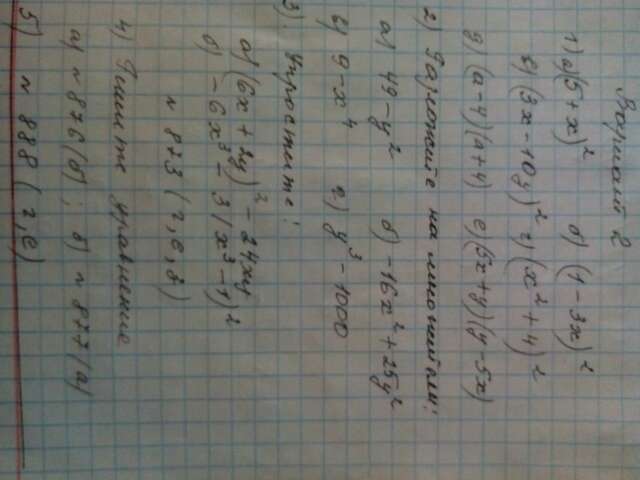 Вариант 2
1) а) (5+x)² б) (1-3x)²
в) (3x-10y)² г) (x²+4)²
д) (a-4)(a+4) е) (5x+y)(y-5x)
2) Разложите на множители:
а) 49-y² б) -16x²+25y²
в) 9-x⁴ г) y³-1000
3). Упростите:
а) (6x+2y)²-24xy
б) -6x³-3(x³-1)²
№ 873 (г, е, з)
4) Решите уравнение
а) № 876(б); б) № 877(а)
5) № 888 (г, е)